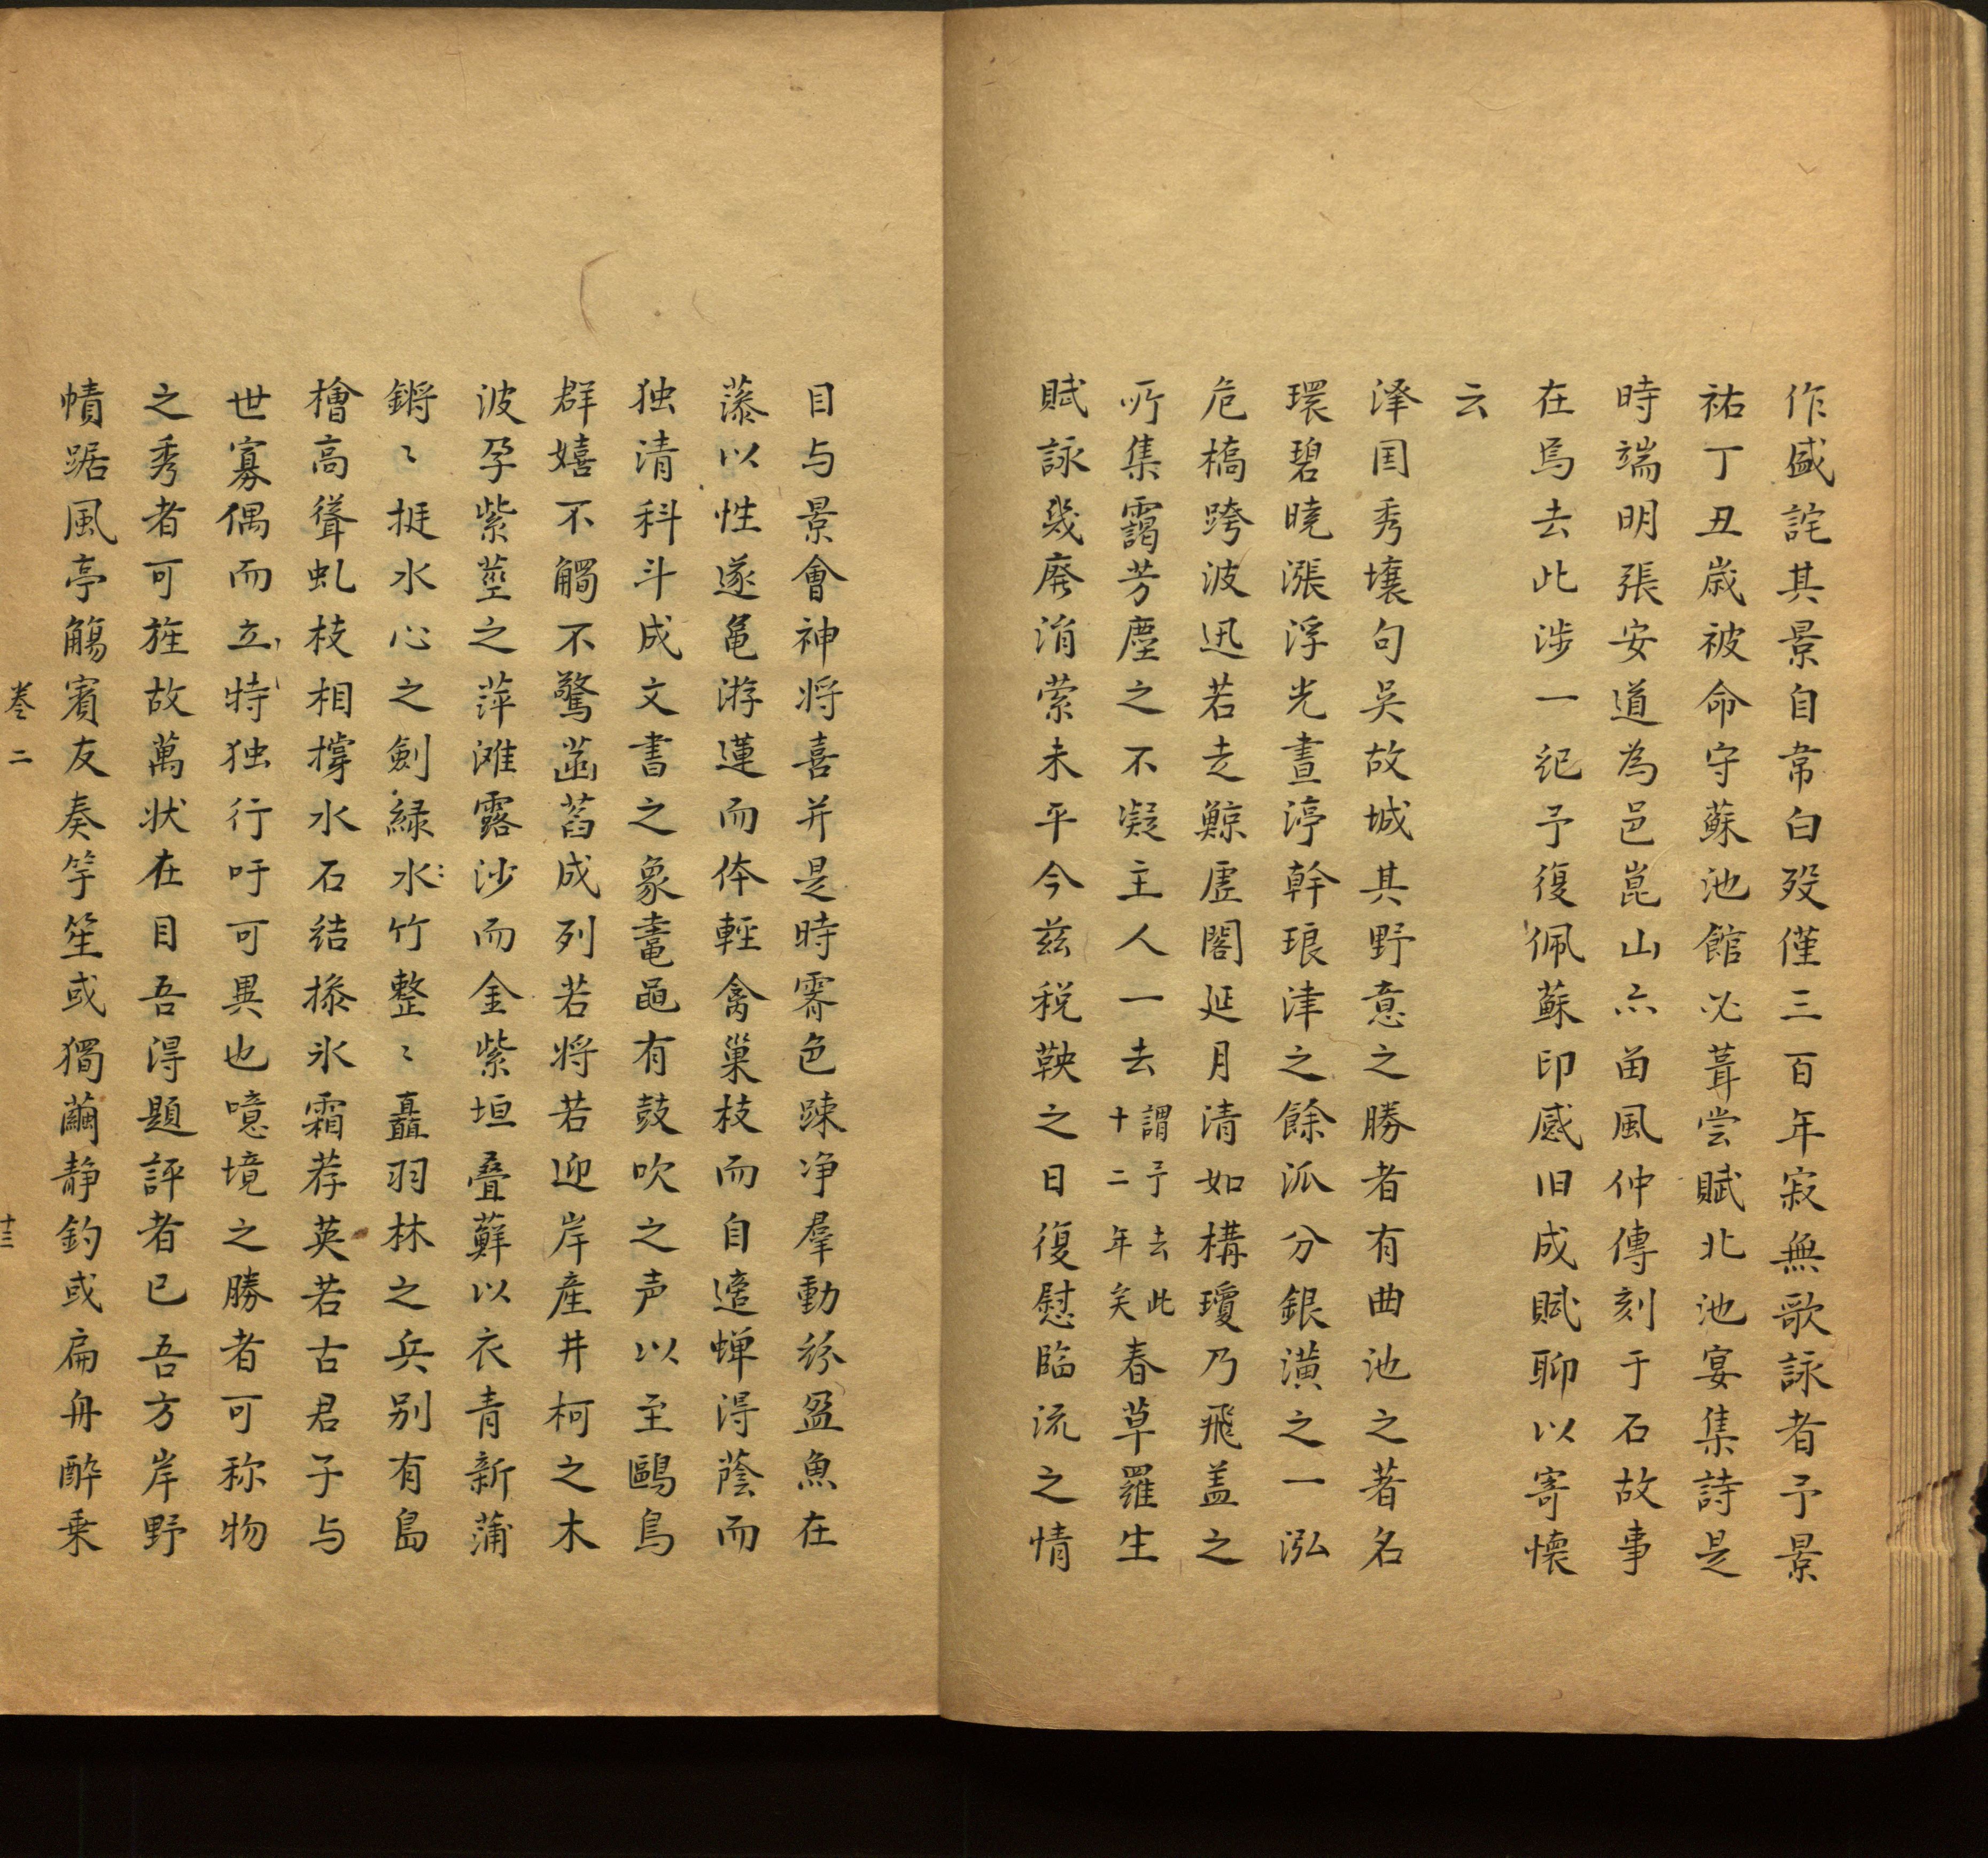 作盛詫其景自韋白歿僅三百年寂無歌詠者予景
祐丁丑歳被命守蘇池館必葺尝賦北池宴集詩是
時端明張安道為邑崑山亦畄風什傳刻于石故事
在焉去此涉一紀予復佩蘇印感旧成賦聊以寄懐
云
泽国秀壤句吳故城其野意之勝者有曲池之著名
環碧曉漲浮光晝渟幹琅津之餘派分銀潢之一泓
危橋跨波迅若走鯨虛閣延月清如構瓊乃飛盖之
所集靄芳塵之不凝主人一去謂予去此十二年矣春草羅生
賦詠㡬廃消萦未平今兹税鞅之日復慰臨流之情
目与景會神将喜并是時霽色踈净羣動紛盈魚在
藻以性遂黾游蓮而体輕禽巢枝而自適蝉得蔭而
独清科斗成文書之象鼃黽有鼓吹之声以至鷗鳥
群嬉不觸不驚菡萏成列若将若迎岸産井柯之木
波孕紫莖之萍滩露沙而金紫垣叠蘚以衣青新蒲
鏘〻挺水心之劍緑水竹整〻矗羽林之兵别有島
檜高聳虬枝相撐水石結操氷霜荐英若古君子与
世寡偶而立特独行吁可異也噫境之勝者可称物
之秀者可旌故萬状在目吾得題評者已吾方岸野
幘踞風亭觴賓友奏竽笙或獨繭静釣或扁舟酔乗
巻二
十三